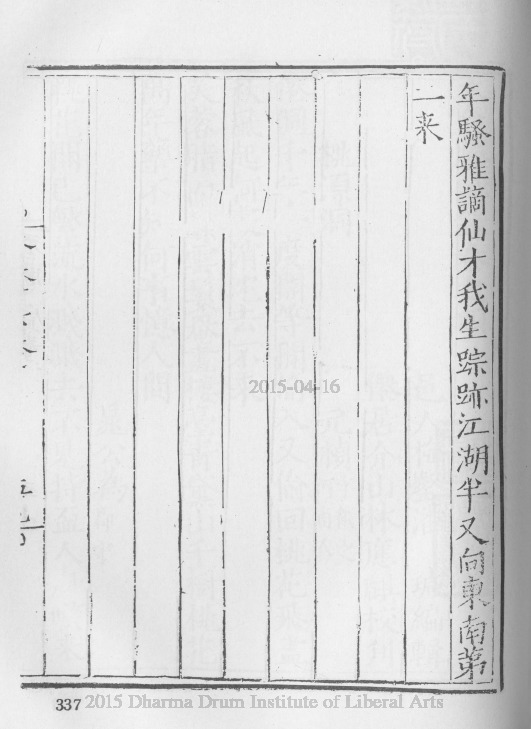 年騷雅謫仙才我生踪跡江湖半又向東南第
一来
2015-04-16
337
2015 Dharma Drum Institute of Liberal Arts